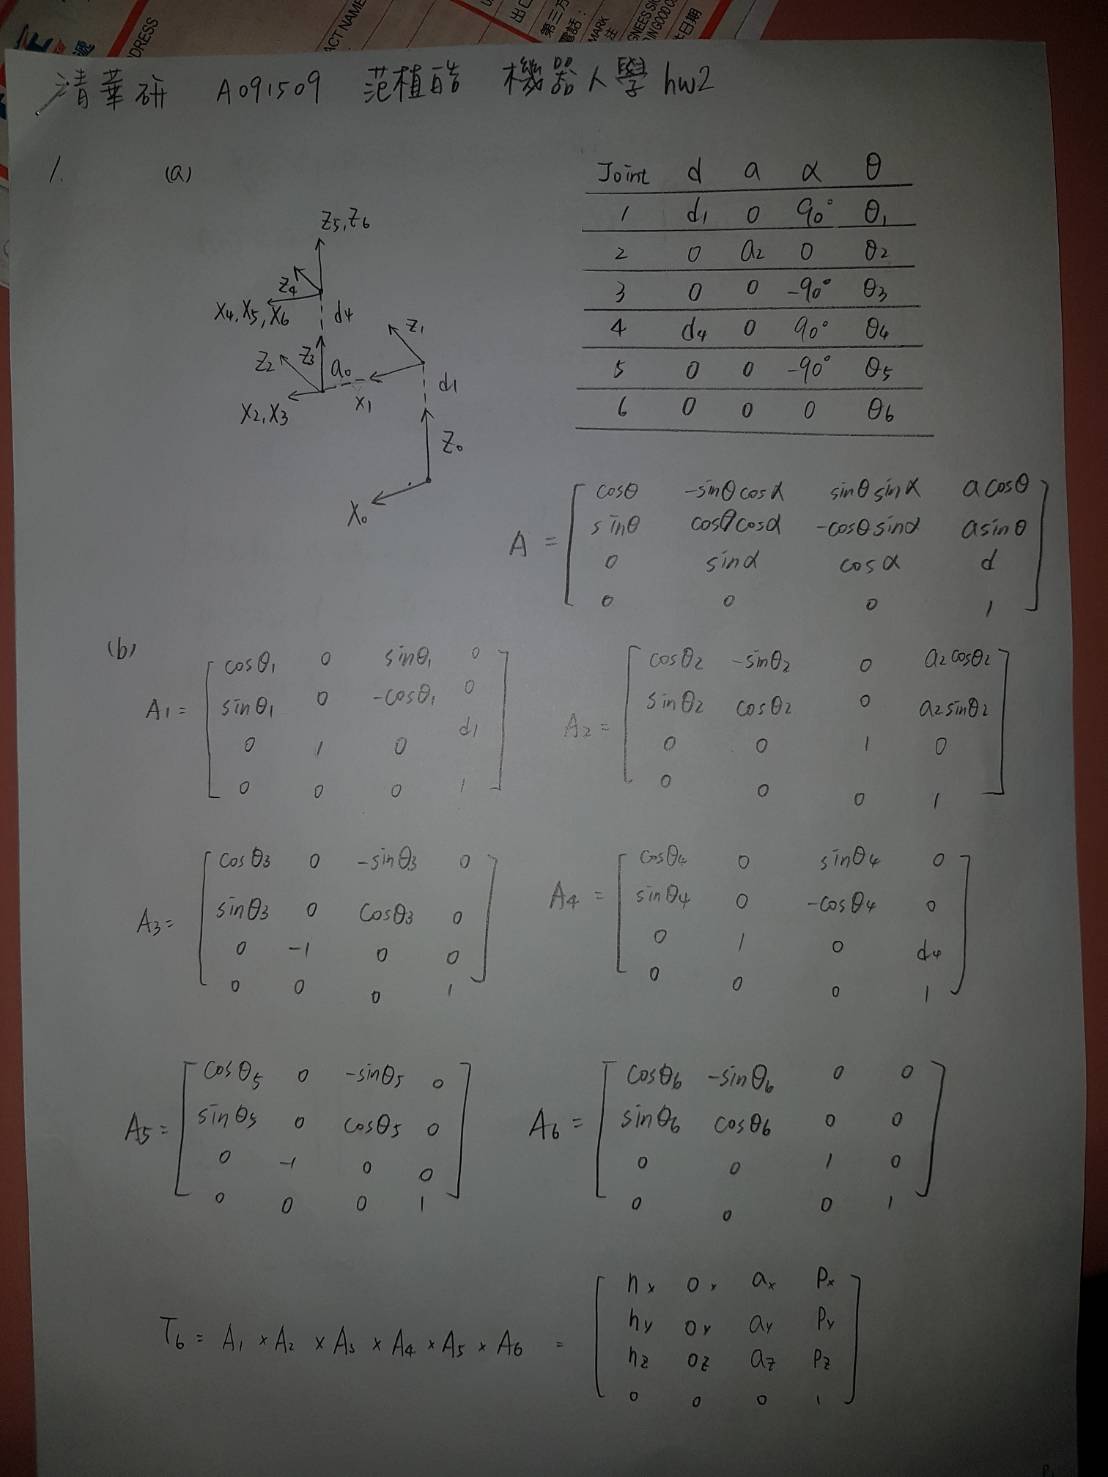 DRESS
ACT NAME
MARK
清華研 A091509 范植酷 機器人學 hw2
1. (a)
Joint d a α θ
1 d₁ 0 90° θ₁
2 0 a₂ 0 θ₂
3 0 0 -90° θ₃
4 d₄ 0 90° θ₄
5 0 0 -90° θ₅
6 0 0 0 θ₆
Z₅,Z₆
Z₄
X₄,X₅,X₆ d₄
Z₁
Z₂ Z₃ a₀
d₁
X₂,X₃ X₁
Z₀
X₀
A = [ cosθ -sinθcosα sinθsinα acosθ
sinθ cosθcosα -cosθsinα asinθ
0 sinα cosα d
0 0 0 1 ]
(b)
A₁= [ cosθ₁ 0 sinθ₁ 0
sinθ₁ 0 -cosθ₁ 0
0 1 0 d₁
0 0 0 1 ]
A₂= [ cosθ₂ -sinθ₂ 0 a₂cosθ₂
sinθ₂ cosθ₂ 0 a₂sinθ₂
0 0 1 0
0 0 0 1 ]
A₃= [ cosθ₃ 0 -sinθ₃ 0
sinθ₃ 0 cosθ₃ 0
0 -1 0 0
0 0 0 1 ]
A₄ = [ cosθ₄ 0 sinθ₄ 0
sinθ₄ 0 -cosθ₄ 0
0 1 0 d₄
0 0 0 1 ]
A₅= [ cosθ₅ 0 -sinθ₅ 0
sinθ₅ 0 cosθ₅ 0
0 -1 0 0
0 0 0 1 ]
A₆ = [ cosθ₆ -sinθ₆ 0 0
sinθ₆ cosθ₆ 0 0
0 0 1 0
0 0 0 1 ]
T₆ = A₁ × A₂ × A₃ × A₄ × A₅ × A₆ = [ nx ox ax Px
ny oy ay Py
nz oz az Pz
0 0 0 1 ]